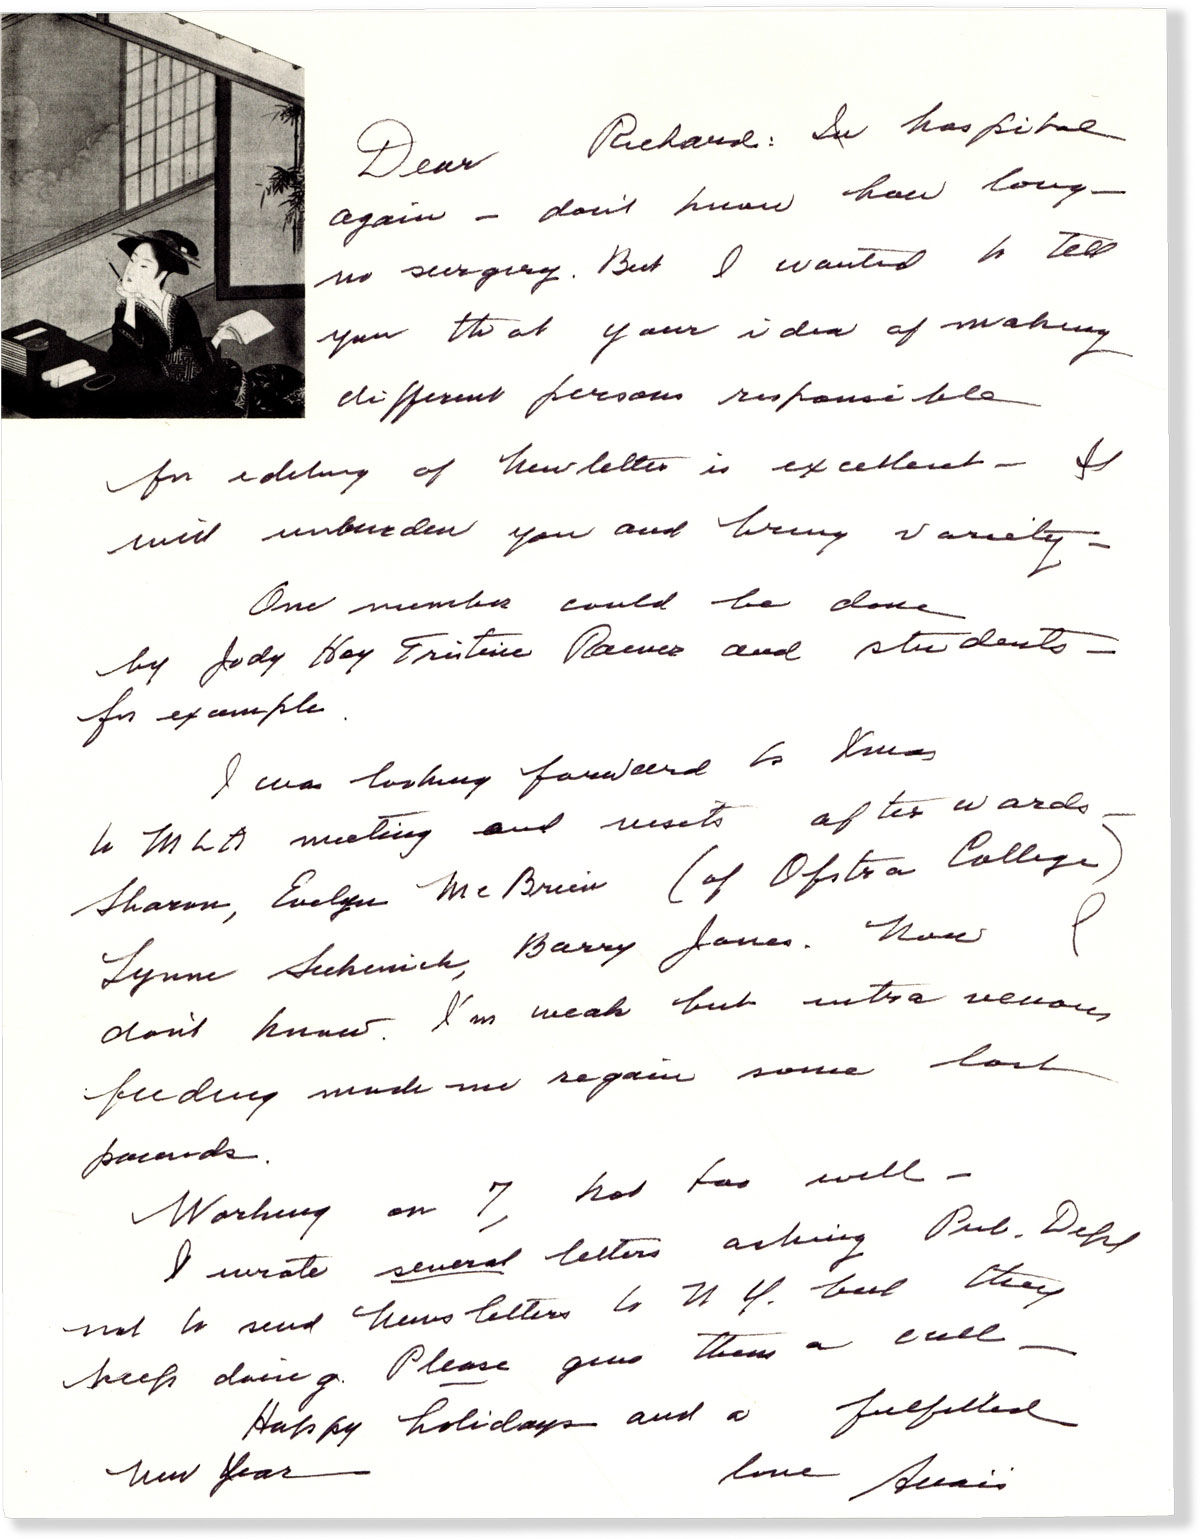 Dear Richard: In hospital
again – don't know how long –
no surgery. But I wanted to tell
you that your idea of making
different persons responsible
for editing of Newsletter is excellent – It
will unburden you and bring variety –
One number could be done
by Jody Hoy Tristine Rainer and students –
for example.
I was looking forward to Xmas
to MLA meeting and visits afterwards –
Sharon, Evelyn, Mc Brien (of Ofstra College)
Lynne Sukenick, Barry Jones. Now I
don't know. I'm weak but intra venous
feeding made me regain some lost
pounds.
Working on 7, not too well –
I wrote several letters asking Pub. Dept
not to send Newsletters to N Y. but they
keep doing. Please give them a call –
Happy holidays and a fulfilled
New Year – love Anais